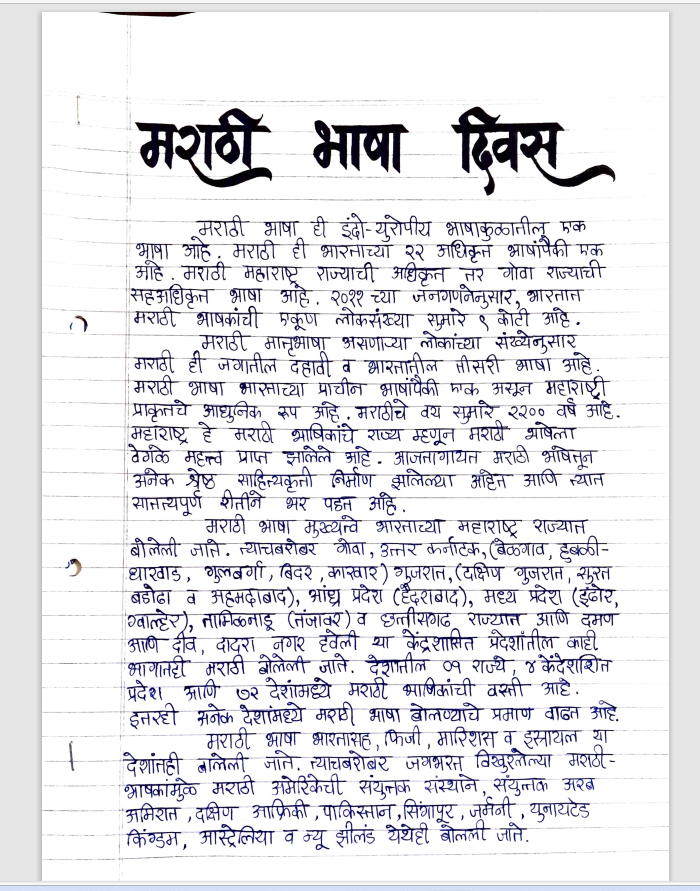 मराठी भाषा दिवस
मराठी भाषा ही इंडो-युरोपीय भाषाकुळातील एक
भाषा आहे. मराठी ही भारताच्या २२ अधिकृत भाषांपैकी एक
आहे. मराठी महाराष्ट्र राज्याची अधिकृत तर गोवा राज्याची
सहअधिकृत भाषा आहे. २०११ च्या जनगणनेनुसार, भारतात
मराठी भाषकांची एकूण लोकसंख्या सुमारे ९ कोटी आहे.
मराठी मातृभाषा असणाऱ्या लोकांच्या संख्येनुसार
मराठी ही जगातील दहावी व भारतातील तीसरी भाषा आहे.
मराठी भाषा भारताच्या प्राचीन भाषांपैकी एक असून महाराष्ट्री
प्राकृतचे आधुनिक रूप आहे. मराठीचे वय सुमारे २२०० वर्ष आहे.
महाराष्ट्र हे मराठी भाषिकांचे राज्य म्हणून मराठी भाषेला
वेगळे महत्त्व प्राप्त झालेले आहे. आजतागायत मराठी भाषेतून
अनेक श्रेष्ठ साहित्यकृती निर्माण झालेल्या आहेत आणि त्यात
सातत्यपूर्ण रीतीने भर पडत आहे.
मराठी भाषा मुख्यत्वे भारताच्या महाराष्ट्र राज्यात
बोलेली जाते. त्याचबरोबर गोवा, उत्तर कर्नाटक, (बेळगाव, हुबळी-
धारवाड, गुलबर्गा, बिदर, कारवार) गुजरात, (दक्षिण गुजरात, सुरत
बडोदा व अहमदाबाद), आंध्र प्रदेश (हैदराबाद), मध्य प्रदेश (इंदोर,
ग्वाल्हेर), तामिळनाडू (तंजावर) व छत्तीसगढ राज्यात आणि दमण
आणि दीव, दादरा नगर हवेली या केंद्रशासित प्रदेशांतील काही
भागातही मराठी बोलेली जाते. देशातील ०१ राज्ये, ४ केंदेशशित
प्रदेश आणि ७२ देशांमध्ये मराठी भाषिकांची वस्ती आहे.
इतरही अनेक देशांमध्ये मराठी भाषा बोलण्याचे प्रमाण वाढत आहे.
मराठी भाषा भारतासह, फिजी, मारिशस व इस्रायल या
देशांतही बोलेली जाते. त्याचबरोबर जगभरात विखुरलेल्या मराठी-
भाषकांमुळे मराठी अमेरिकेची संयुक्तक संस्थाने, संयुक्तक अरब
अमिरात, दक्षिण आफ्रिकी, पाकिस्तान, सिंगापूर, जर्मनी, युनायटेड
किंग्डम, आस्ट्रेलिया व न्यू झीलंड येथेही बोलली जाते.